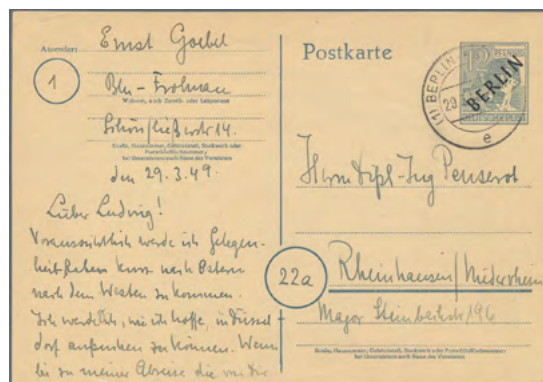 Absender: Ernst Goebel
1
Bln - Frohnau
Wohnort, auch Zustell- oder Leitpostamt
Schönfließerstr 14.
Straße, Hausnummer, Gebäudeteil, Stockwerk oder Postschließfachnummer;
bei Untermietern auch Name des Vermieters
den 29.3.49.
Lieber Ludwig!
Voraussichtlich werde ich Gelegen-
heit haben kurz nach Ostern
nach dem Westen zu kommen.
Ich werde dich, wie ich hoffe, in Düssel-
dorf aufsuchen zu können. Wenn
bis zu meiner Abreise die von dir
Postkarte
PFENNIG
BERLIN
(1) BERLIN
29
e
Herrn Dipl-Ing Penserot
22a
Rheinhausen/Niederrhein
Major Steinbachstr 196
Straße, Hausnummer, Gebäudeteil, Stockwerk oder Postschließfachnummer;
bei Untermietern auch Name des Vermieters